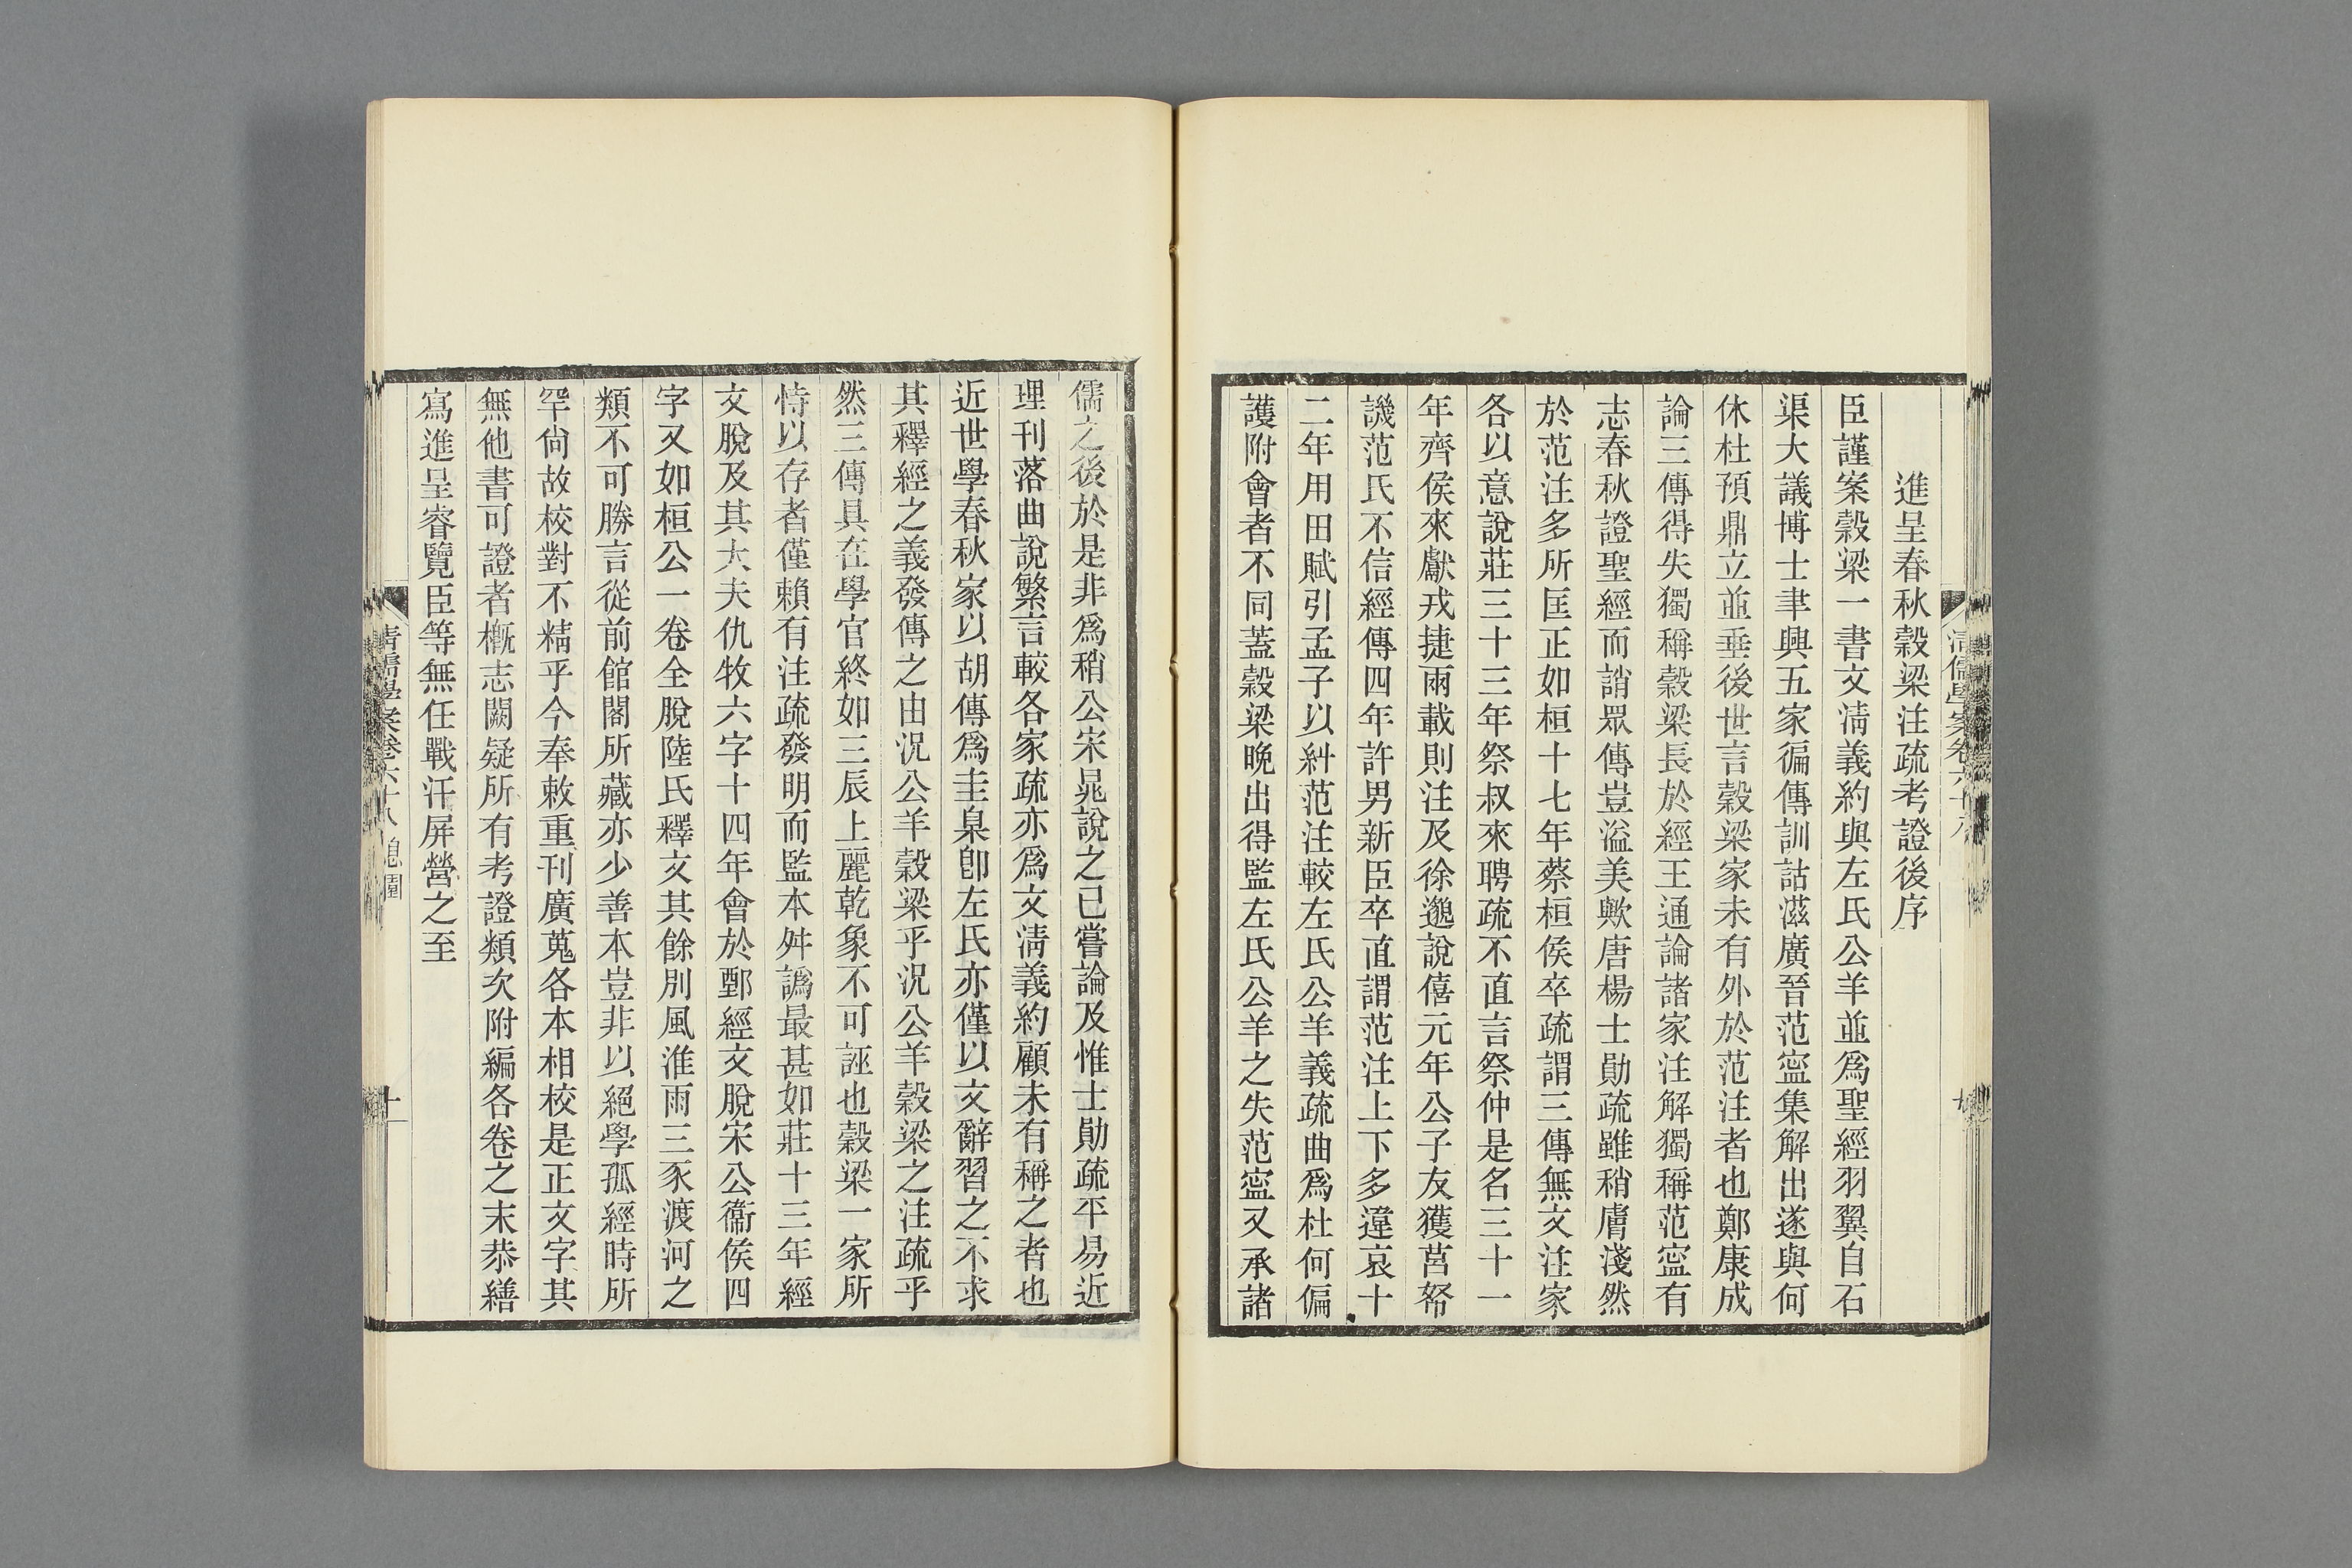 進呈春秋穀梁注疏考證後序
臣謹案穀梁一書文淸義約與左氏公羊並爲聖經羽翼自石
渠大議博士聿興五家徧傳訓詁滋廣晉范寧集解出遂與何
休杜預鼎立並垂後世言穀梁家未有外於范注者也鄭康成
論三傳得失獨稱穀梁長於經王通論諸家注解獨稱范寧有
志春秋證聖經而誚眾傳豈溢美歟唐楊士勛疏雖稍膚淺然
於范注多所匡正如桓十七年蔡桓侯卒疏謂三傳無文注家
各以意說莊三十三年祭叔來聘疏不直言祭仲是名三十一
年齊侯來獻戎捷兩載則注及徐邈說僖元年公子友獲莒帑
譏范氏不信經傳四年許男新臣卒直謂范注上下多違哀十
二年用田賦引孟子以糾范注較左氏公羊義疏曲爲杜何偏
護附會者不同蓋穀梁晚出得監左氏公羊之失范寧又承諸
儒之後於是非爲稍公宋晁說之已嘗論及惟士勛疏平易近
理刊落曲說繁言較各家疏亦爲文淸義約顧未有稱之者也
近世學春秋家以胡傳爲圭臬卽左氏亦僅以文辭習之不求
其釋經之義發傳之由況公羊穀梁乎況公羊穀梁之注疏乎
然三傳具在學官終如三辰上麗乾象不可誣也穀梁一家所
恃以存者僅賴有注疏發明而監本舛譌最甚如莊十三年經
文脫及其大夫仇牧六字十四年會於鄄經文脫宋公衞侯四
字又如桓公一卷全脫陸氏釋文其餘別風淮雨三豕渡河之
類不可勝言從前館閣所藏亦少善本豈非以絕學孤經時所
罕尙故校對不精乎今奉敕重刊廣蒐各本相校是正文字其
無他書可證者槪志闕疑所有考證類次附編各卷之末恭繕
寫進呈睿覽臣等無任戰汗屛營之至